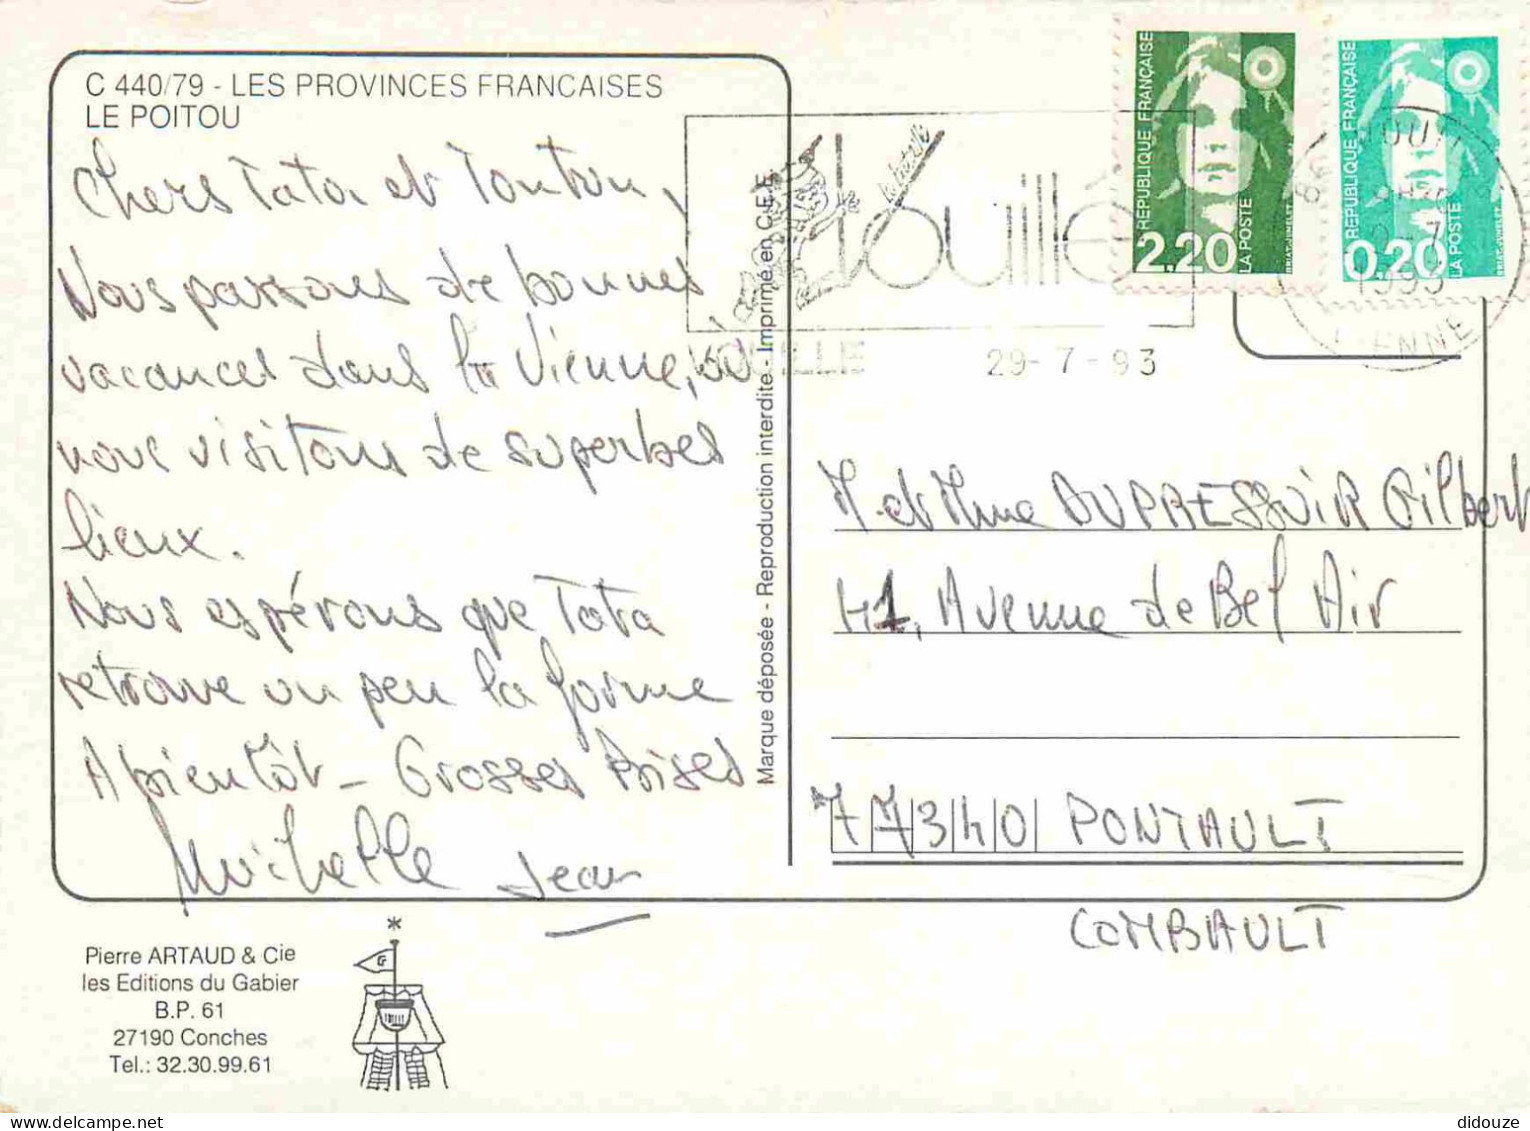 C 440/79 - LES PROVINCES FRANCAISES
LE POITOU
Chers Tata et Tonton,
Nous passons de bonnes
vacances dans la Vienne, où
nous visitons de superbes
lieux.
Nous espérons que Tata
retrouve un peu la forme
A bientôt - Grosses Bises
Michelle Jean
Pierre ARTAUD & Cie
les Editions du Gabier
B.P. 61
27190 Conches
Tel.: 32.30.99.61
Marque déposée - Reproduction interdite - Imprimé en C.E.E.
Vouillé
la bataille
VOUILLE
29-7-93
RÉPUBLIQUE FRANÇAISE
2,20
LA POSTE
RÉPUBLIQUE FRANÇAISE
0,20
LA POSTE
1993
VIENNE
M et Mme DUPRESSOIR Gilbert
41, Avenue de Bel Air
77340 PONTAULT
COMBAULT
didouze